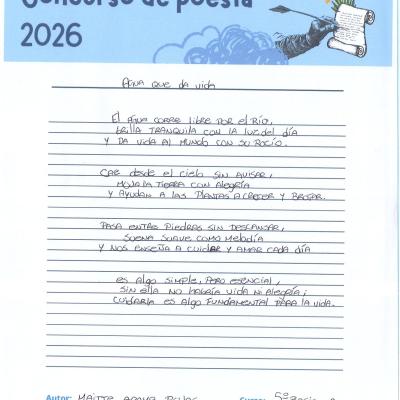 Concurso de poesía
2026
Agua que da vida
El agua corre libre por el río,
brilla tranquila con la luz del día
y da vida al mundo con su rocío.
Cae desde el cielo sin avisar,
moja la tierra con alegría
y ayudan a las plantas a crecer y brotar.
Pasa entre piedras sin descansar,
suena suave como melodía
y nos enseña a cuidar y amar cada día
es algo simple, pero esencial,
sin ella no habría vida ni alegría;
cuidarla es algo fundamental para la vida.
Autor: Maitte Araya
Curso: 5º